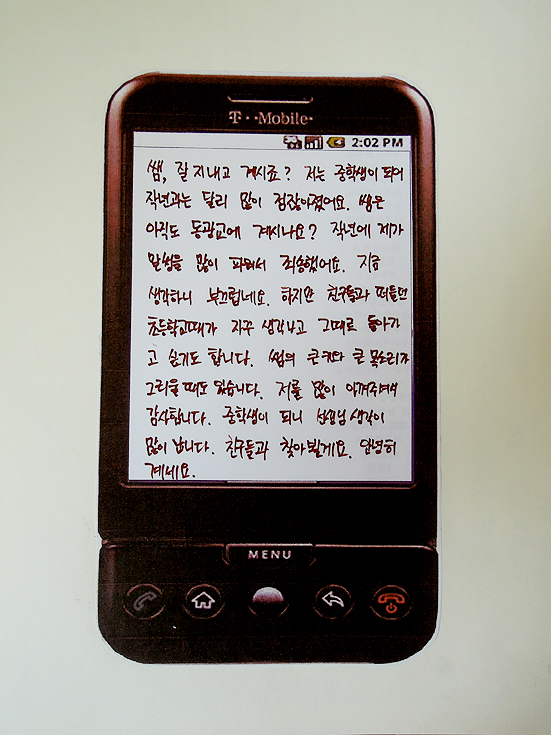 T··Mobile·
2:02 PM
쌤, 잘 지내고 계시죠? 저는 중학생이 되어
작년과는 달리 많이 점잖아졌어요. 쌤은
아직도 동광교에 계시나요? 작년에 제가
말썽을 많이 피워서 죄송했어요. 지금
생각하니 부끄럽네요. 하지만 친구들과 떠들던
초등학교때가 자꾸 생각나고 그때로 돌아가
고 싶기도 합니다. 쌤의 큰 키와 큰 목소리가
그리울 때도 있습니다. 저를 많이 아껴주셔서
감사합니다. 중학생이 되니 선생님 생각이
많이 납니다. 친구들과 찾아뵐게요. 안녕히
계세요.
MENU